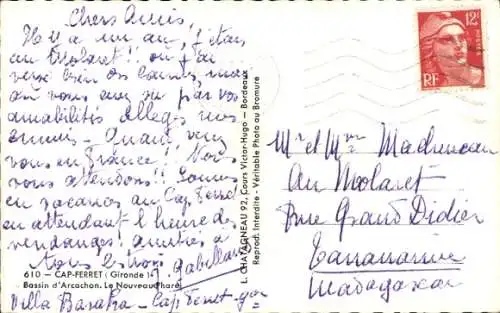 Chers Amis,
Il y a un an, j'étais
au Molaret!! où j'ai
versé bien des larmes, mais
où vous avez su par vos
amabilités alléger mes
ennuis - Quand
vous en France! Nous
vous attendons!! Sommes
en vacances au Cap Ferret
en attendant l'heure des
vendanges! amitiés à
Tous les trois
610 - CAP-FERRET (Gironde)
Bassin d'Arcachon. Le Nouveau Phare
Villa - Cap Ferret -
L. CHATAGNEAU 92, Cours Victor-Hugo - Bordeaux
Reprod. Interdite - Véritable Photo au Bromure
12F
RF
POSTES
Mr et Mme
Au Molaret
Rue Grand Didier
Tananarive
Madagascar